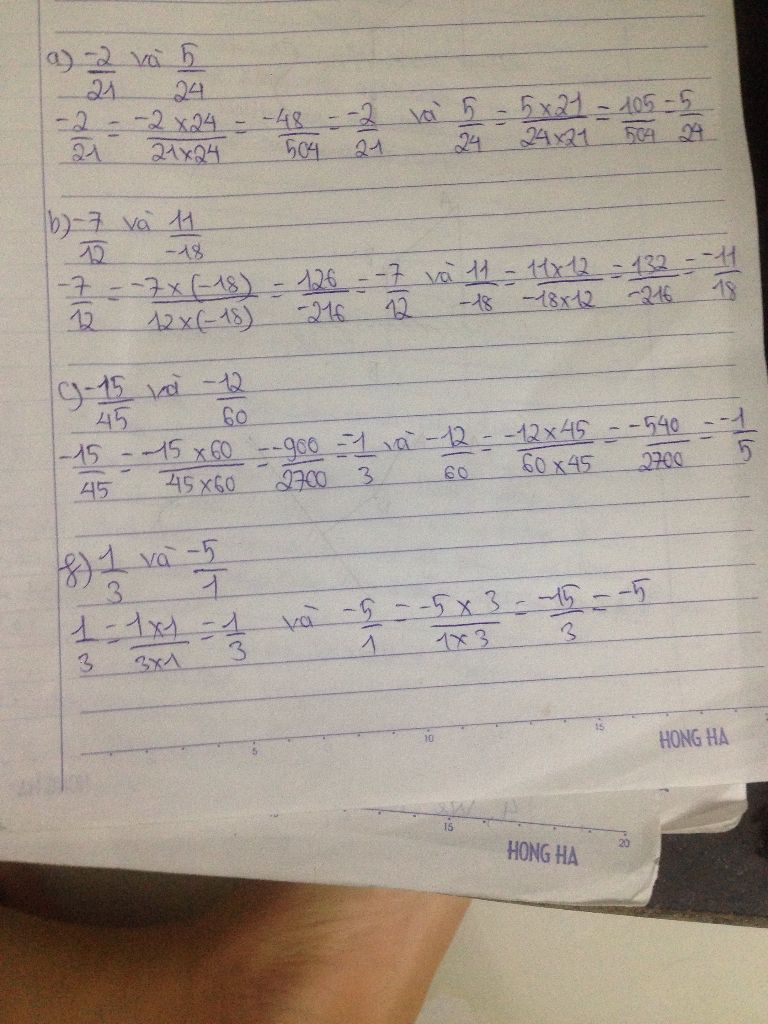 a) -2/21 và 5/24
-2/21 = -2 x 24/21 x 24 = -48/504 = -2/21 và 5/24 = 5 x 21/24 x 21 = 105/504 = 5/24
b) -7/12 và 11/-18
-7/12 = -7 x (-18)/12 x (-18) = 126/-216 = -7/12 và 11/-18 = 11 x 12/-18 x 12 = 132/-216 = -11/18
c) -15/45 và -12/60
-15/45 = -15 x 60/45 x 60 = -900/2700 = -1/3 và -12/60 = -12 x 45/60 x 45 = -540/2700 = -1/5
8) 1/3 và -5/1
1/3 = 1 x 1/3 x 1 = 1/3 và -5/1 = -5 x 3/1 x 3 = -15/3 = -5
5 10 15
HONG HA
15 20
HONG HA